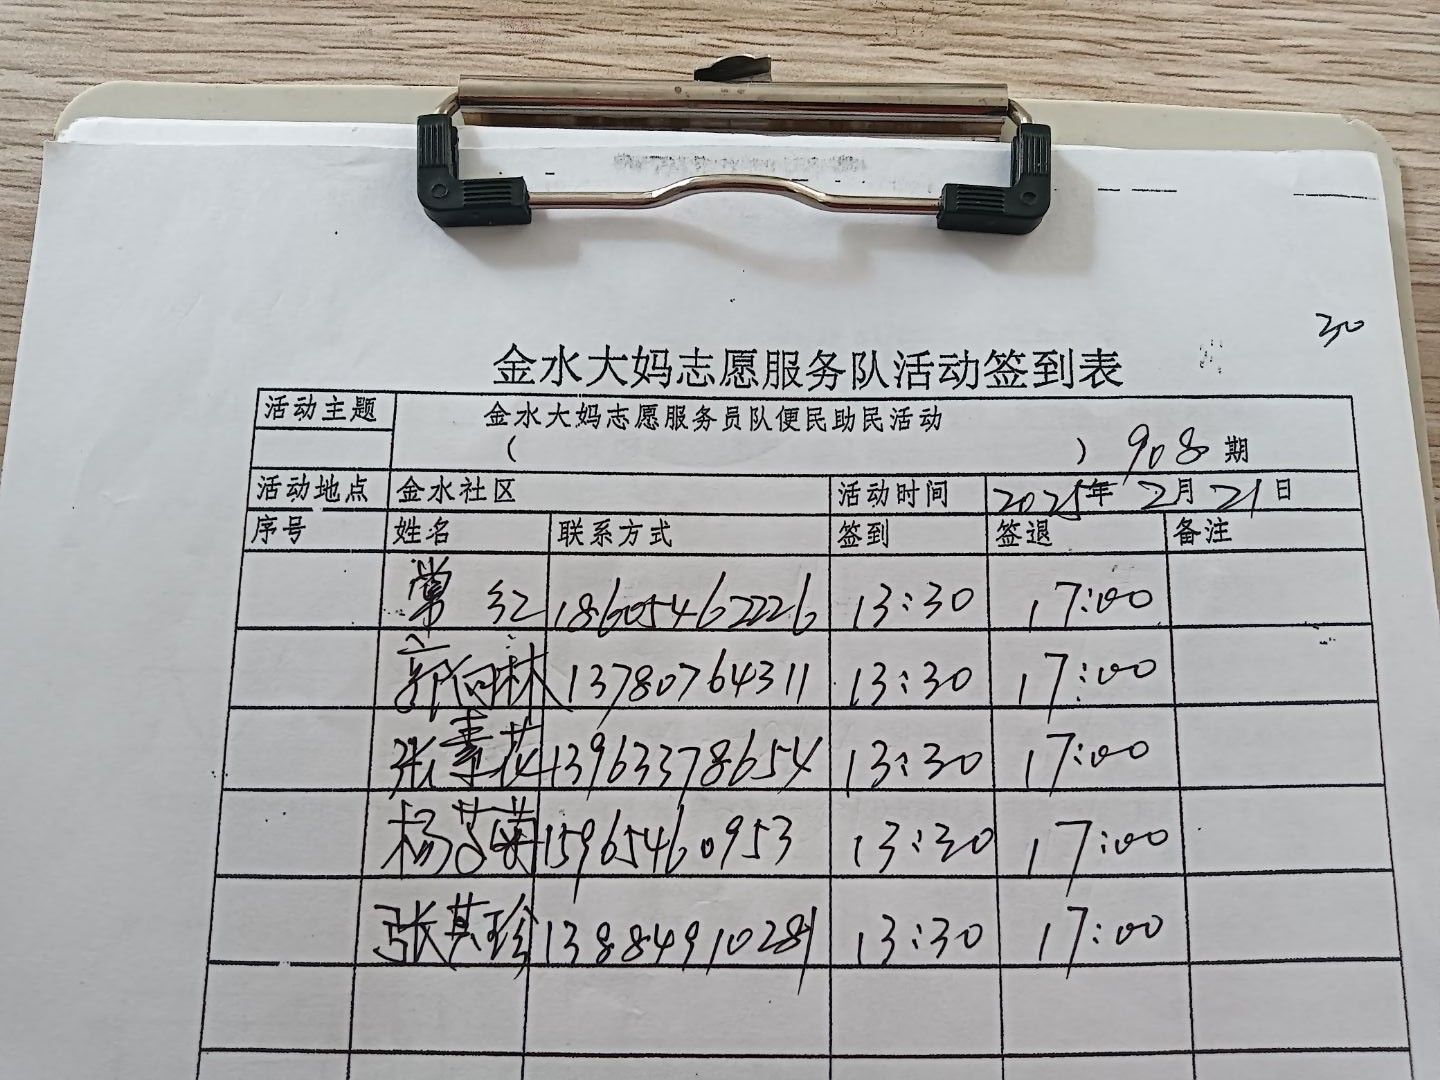 30
金水大妈志愿服务队活动签到表
活动主题 金水大妈志愿服务员队便民助民活动
( ) 908期
活动地点 金水社区 活动时间 2025年2月21日
序号 姓名 联系方式 签到 签退 备注
常红 18605462226 13:30 17:00
郭向林 13780764311 13:30 17:00
张素花 13963378654 13:30 17:00
杨芳英 15965460953 13:30 17:00
张其珍 13884910281 13:30 17:00